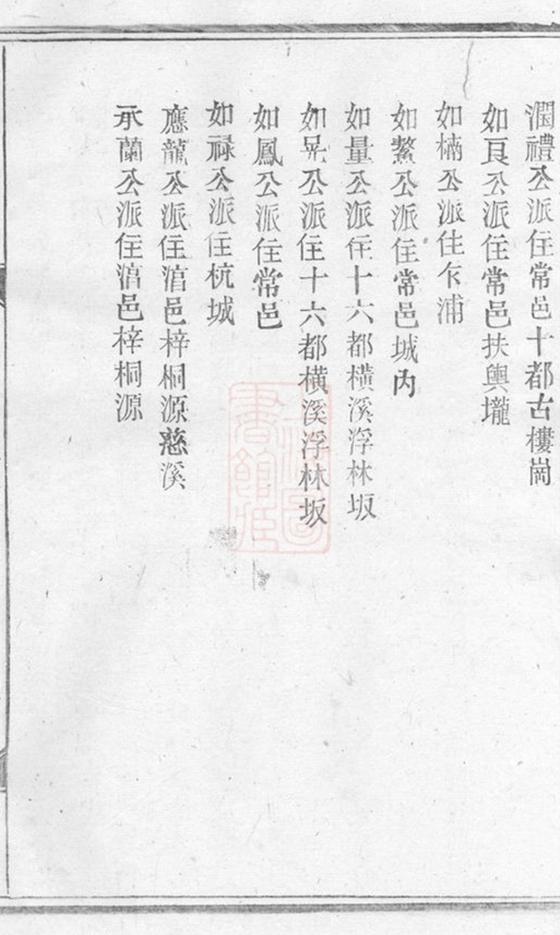 潤禮公派住常邑十都古樓崗
如良公派住常邑扶輿壠
如楠公派住乍浦
如鰲公派住常邑城內
如量公派住十六都橫溪浮林坂
如晃公派住十六都橫溪浮林坂
如鳳公派住常邑
如祿公派住杭城
應龍公派住湻邑梓桐源慈溪
承蘭公派住湻邑梓桐源